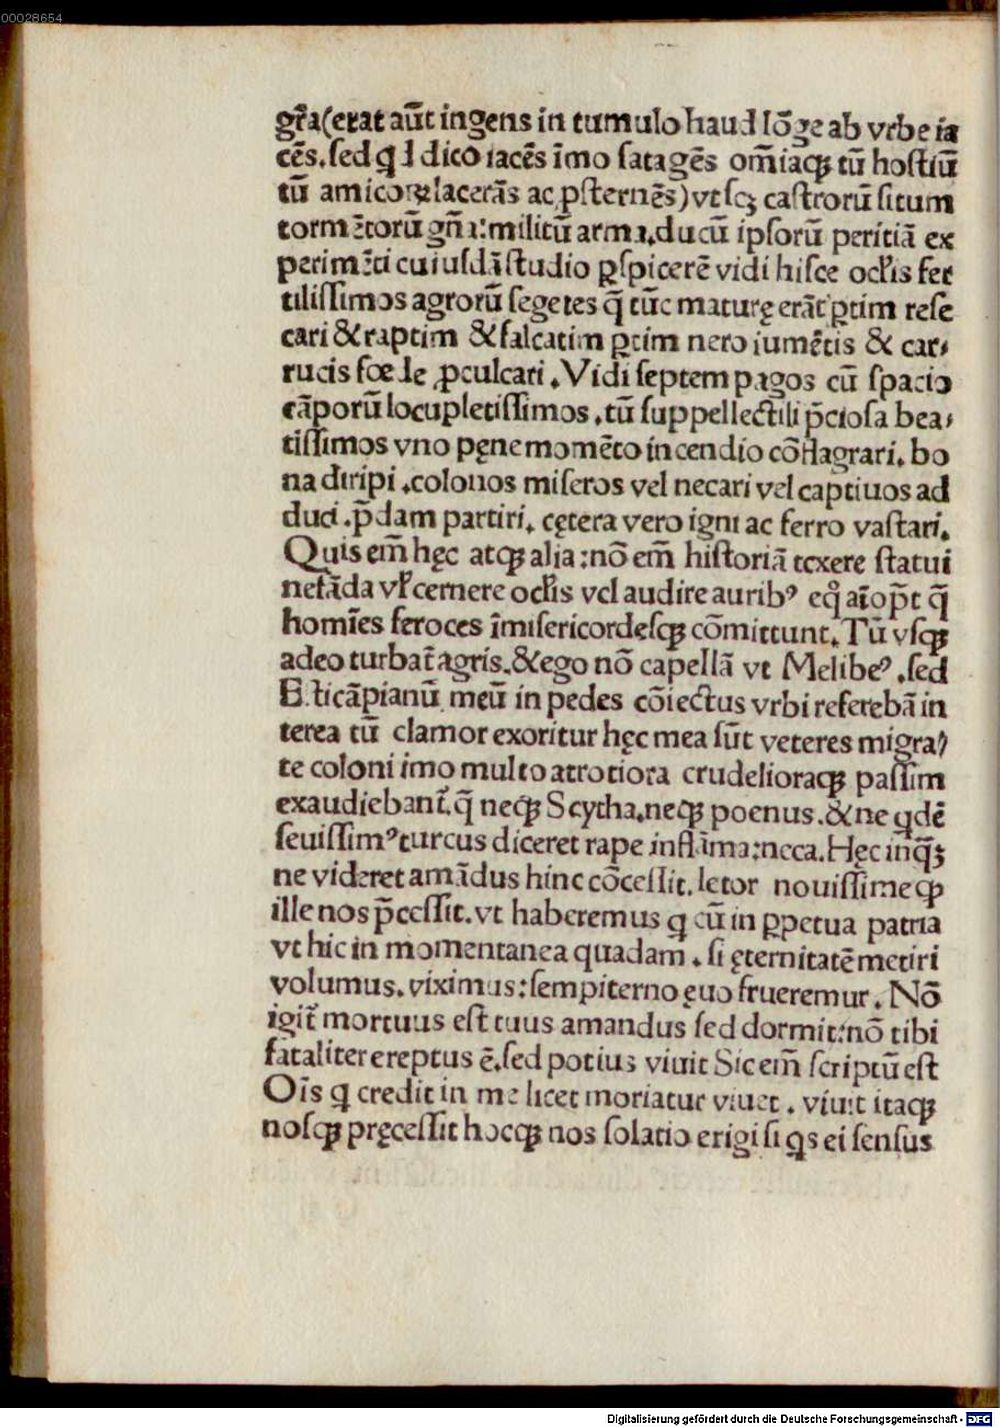 00028654
gr̄a(erat aūt ingens in tumulo haud lōge ab vrbe ia
cēs. sed qd dico iacēs īmo satagēs om̄iaqꝫ tū hostiū
tū amicoꝝ lacerās ac ꝓsternēs) vt sqꝫ castrorū situm
tormētorū gn̄a: militū arma. ducū ipsorū peritiā ex
perimēti cuiusdā studio ꝑspicerē vidi hisce ocl̓is fer
tilissimos agrorū segetes q̄ tūc maturę erāt ꝑtim rese
cari & raptim & falcatim ꝑtim nero iumētis & car⸗
rucis foede ꝓculcari. Vidi septem pagos cū spacio
cāporū locupletissimos. tū suppellectili p̄ciosa bea⸗
tissimos vno pęne momēto incendio cōflagrari. bo
na diripi. colonos miseros vel necari vel captiuos ad
duci. p̄dam partiri. cętera vero igni ac ferro vastari.
Quis em̄ hęc atqꝫ alia: nō em̄ historiā texere statui
nefāda vl̓ cernere ocl̓is vel audire auribꝰ eq̊ aīo p̄t q̄
homīes feroces īmisericordesqꝫ cōmittunt. Tū vsqꝫ
adeo turbat̄ agris. & ego nō capellā vt Melibeꝰ. sed
Elticāpianū meū in pedes cōiectus vrbi referebā in
terea tū clamor exoritur hęc mea sūt veteres migra⸗
te coloni imo multo atrotiora crudelioraqꝫ passim
exaudiebant̄. q̄ neqꝫ Scytha. neqꝫ poenus. & ne qdē
seuissimꝰ turcus diceret rape inflāma: neca. Hęc inq̄ꝫ
ne videret amādus hinc cōcessit. letor nouissimeqꝫ
ille nos p̄cessit. vt haberemus q cū in ꝑpetua patria
vt hic in momentanea quadam. si ęternitatē metiri
volumus. viximus: sempiterno ęuo frueremur. Nō
igit̄ mortuus est tuus amandus sed dormit: nō tibi
fataliter ereptus ē. sed potius viuit Sic em̄ scriptū est
Oīs q credit in me licet moriatur viuet. viuit itaqꝫ
nosqꝫ pręcessit hocqꝫ nos solatio erigi si qs ei sensus
Digitalisierung gefördert durch die Deutsche Forschungsgemeinschaft - DFG